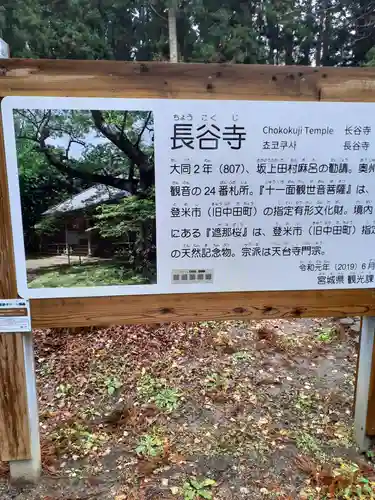 ちょう こく じ
長谷寺
Chokokuji Temple 长谷寺
쵸코쿠사 長谷寺
大同２年（807）、坂上田村麻呂の勧請。奥州
観音の24番札所。『十一面観世音菩薩』は、
登米市（旧中田町）の指定有形文化財。境内
にある『遮那桜』は、登米市（旧中田町）指定
の天然記念物。宗派は天台寺門宗。
令和元年（2019）6月
宮城県 観光課